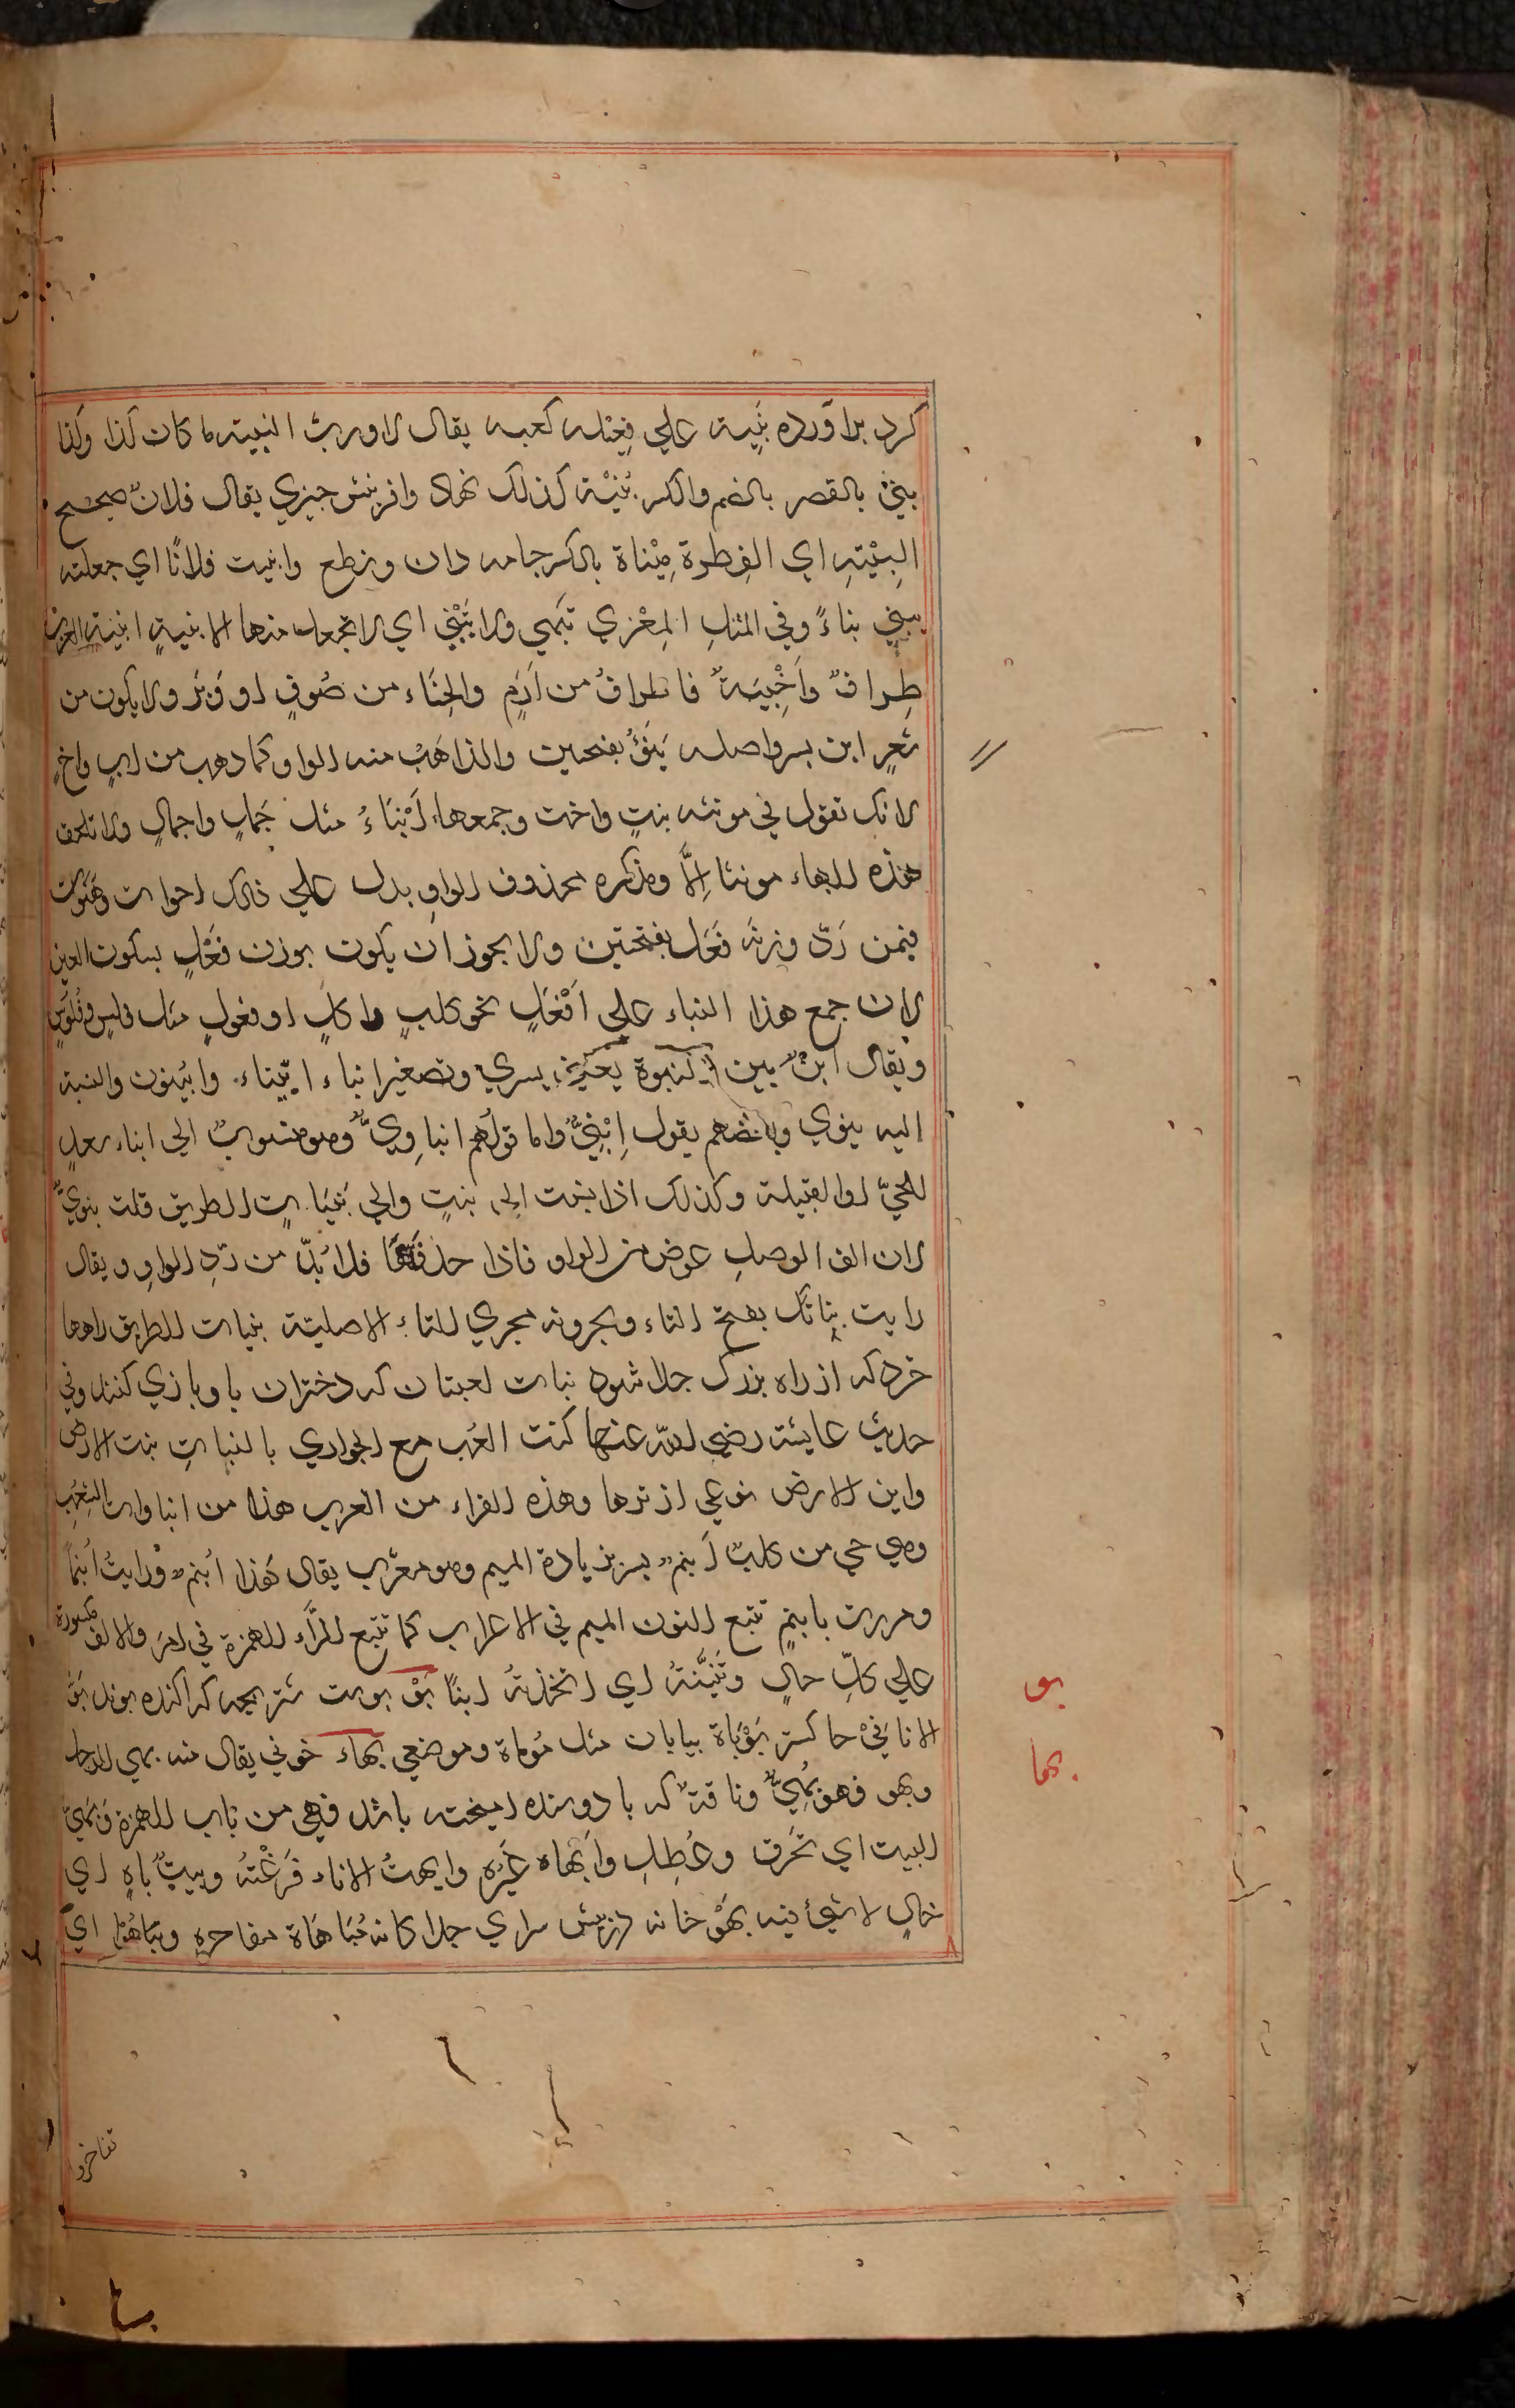 كرد برآورده بَنِيّه علي فِعْله كعبه يقال لا ورب البنيّه ما كان كذا وكذا
بنىً بالقصر بالضم والكسر بُنْيَة كذلك نهاد وافرينش چيزي يقال فلانٌ صحيح
البِنْيَتهِ اي الفِطرة مِبْناة بالكسر جامه دان ونطع وابنيت فلانًا اي جعلته
يبني بناءً وفي المثلِ المِعْزي تبَهي ولا تُبْني اي لا تجعل منها الابنيةِ ابنية العرب
طِرافٌ واَخْبِيَةٌ فالطرافُ من اَدَمٍ والخِبَاء من صُوفٍ او وَبَرٍ ولا يكون من
شعرٍ ابن پسر واصله بَنَوٌ بفتحتين والذاهَبُ منه الواو كما دهب من ابٍ واخٍ
لانك تقول في مونثه بنتٍ واخت وجمعها اَبْنَاءُ مثل جَملٍ واجمالٍ ولا تلحق
هذه الهاء مونثا اِلَّا ومذكره محذوف الواوِ يدل علي ذلك اخوات وهَنَوات
فيمن رَدّ وزنه فَعَل بفتحتين ولا يجوز ان يكون بوزن فَعْلٍ بسكون العين
لان جمع هذا البناء علي اَفْعُلٍ نحو كلبٍ واكلبٍ او فعولٍ مثل فلسٍ وفُلوسٍ
ويقال ابنٌ بين البنوة پسري وتصغير ابناء اُبَيْناء وابُينون والنسبة
اليه بنوي وبعضهم يقول اِبْنِيٌّ واما قولُهم ابناوِيٌّ وهو منسوبٌ الي ابناء سعدٍ
للحيّ او القبيلة وكذلك اذا نسبت الي بنتٍ والي بُنَيّاتٍ الطريق قلت بنويٌّ
لان الف الوصلِ عوض من الواو فاذا حذفتها فلا بُدّ من ردّ الواوِ ويقال
رايت بناتَك بفتح التاء ويجرونه مجري التاء الاصليّة بنيات الطريق راهها
خرد كه از راه بزرك جدا شود بنات لعبتان كه دختران با وبازي كنند وفي
حديث عايشة رضي الله عنها كنت العب مع الجواري بالبناتِ بنت الارض
وابن الارض نوعي از ترها وهذه الفراء من العرب هذا من ابناوات الشعبِ
وهي حي من كلبٌ اَبنم پسر بزيادة الميم وهو معرب يقال هَذا اُبنم ورايتُ اَبنَماً
ومررت بابنِمٍ تتبع النون الميم في الاعراب كما تتبع الرّاء الهمزة في امرَ والالف مكسورة
علي كلّ حالٍ وتَبَنَّيْتُه اي اتخذتهُ ابنًا بَوْ پوست شتر بچه كه اكنده بوند بَوُّ
الاثافِيْ خاكستر بَوْبَاة بيابان مثل مَوماة وموضعي بهاء خوبي يقال منه بهي الرجل
وبهو فهو بَهِيٌّ وناقة كه با دوشنده اميخته باشد فهي من باب الهمزة وَبَهِيَ
البيت اي تَخَرق وعُطِلِ وَاَبْهاه غيُره وابهيتُ الاناء فَرَّغْتُه وبيتٌ باهٍ اي
خالٍ لا شئ فيه بَهْو خانه در پيش سراي جداكانه مُبَاهَاة مفاخره وتبَاهَوْا اي
بو
بها
تفاخروا